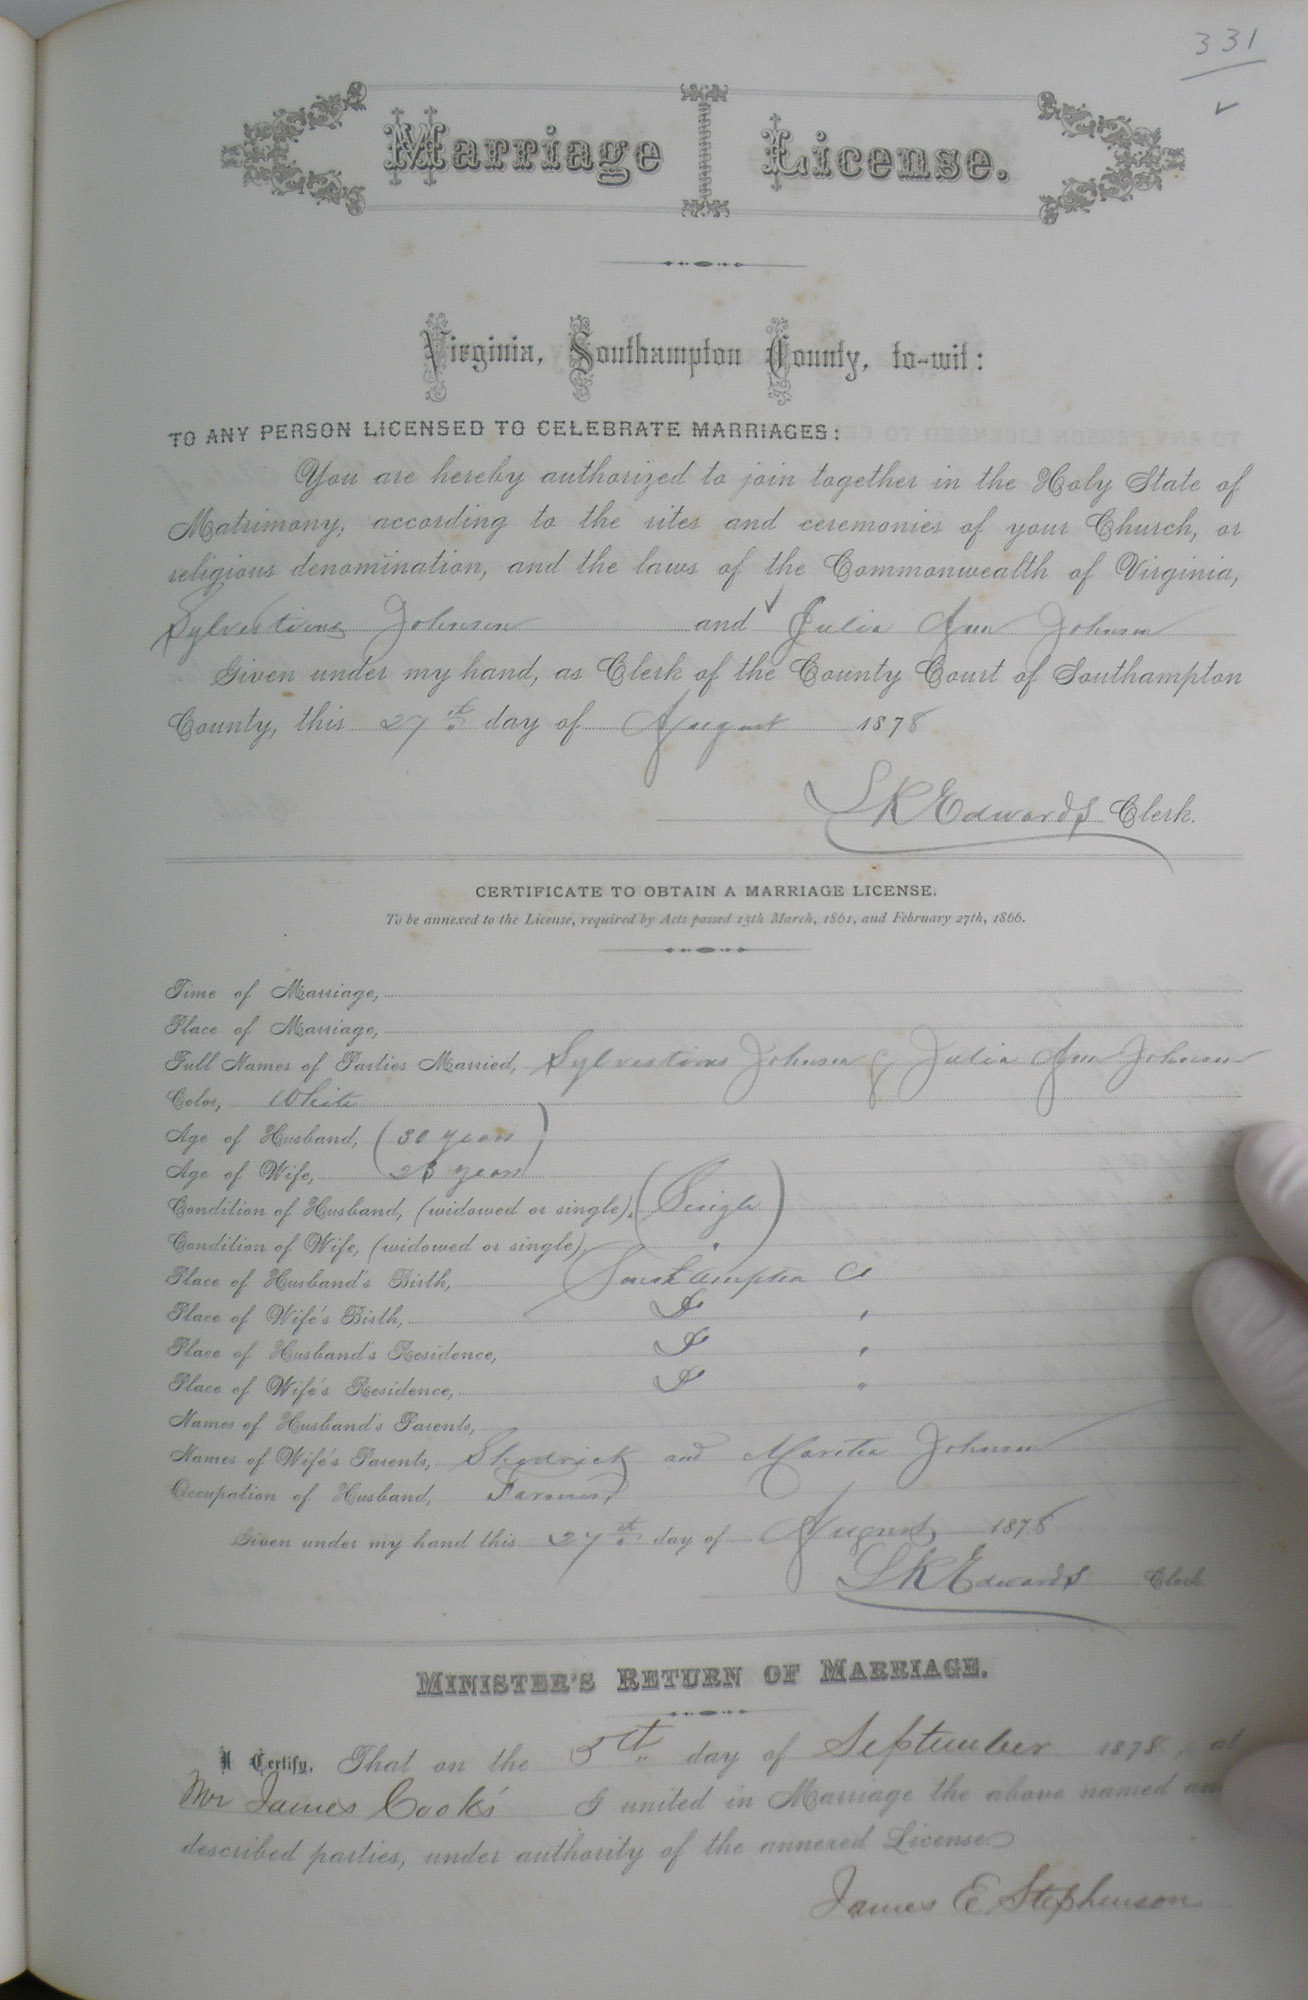 331
Marriage License.
Virginia, Southampton County, to-wit:
TO ANY PERSON LICENSED TO CELEBRATE MARRIAGES:
You are hereby authorized to join together in the Holy State of
Matrimony, according to the rites and ceremonies of your Church, or
religious denomination, and the laws of the Commonwealth of Virginia,
Sylvestious Johnson and Julia Ann Johnson
Given under my hand, as Clerk of the County Court of Southampton
County, this 27th day of August 1878
L R Edwards Clerk.
CERTIFICATE TO OBTAIN A MARRIAGE LICENSE.
To be annexed to the License, required by Acts passed 15th March, 1861, and February 27th, 1866.
Time of Marriage,
Place of Marriage,
Full Names of Parties Married, Sylvestious Johnson & Julia Ann Johnson
Color, White
Age of Husband, (30 years)
Age of Wife, 23 years
Condition of Husband, (widowed or single), (Single)
Condition of Wife, (widowed or single), "
Place of Husband's Birth, Southampton Co
Place of Wife's Birth, "
Place of Husband's Residence, "
Place of Wife's Residence, "
Names of Husband's Parents,
Names of Wife's Parents, Shedrick and Johnson
Occupation of Husband, Farmer
Given under my hand this 27th day of August 1878
L R Edwards Clerk
MINISTER'S RETURN OF MARRIAGE.
I Certify, That on the 5th day of September 1878, at
Mr James Cook's I united in Marriage the above named and
described parties, under authority of the annexed License
James E Stephenson